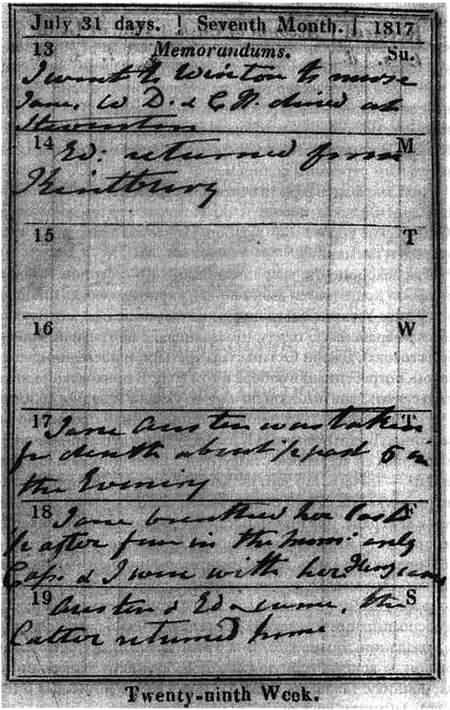 July 31 days. Seventh Month. 1817
13 Memorandums. Su.
I went to Winton to nurse
Jane. W D. & C. W. dined at
Steventon
14 Ed: returned from M
Kintbury
15 T
16 W
17 Jane Austen was taken T
for death about 1/2 past 5 in
the Evening
18 Jane breathed her last F
1/2 after four in the morn: only
Cass. & I were with her Henry came
19 Austen & Ed came, the S
latter returned home
Twenty-ninth Week.